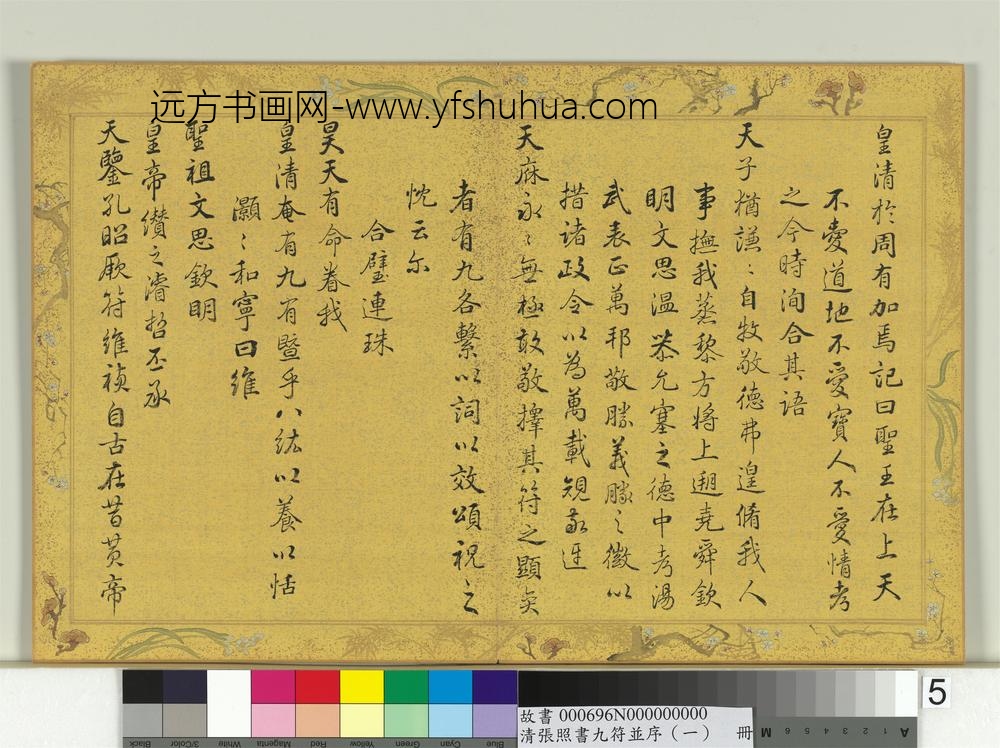 远方书画网-www.yfshuhua.com
皇清於周有加焉記曰聖王在上天
不愛道地不愛寶人不愛情考
之今時洵合其語
天子猶謙〻自牧敬德弗遑脩我人
事撫我蒸黎方將上遡堯舜欽
明文思溫恭允塞之德中考湯
武表正萬邦敬勝義勝之徽以
措諸政令以為萬載規敬迓
天庥永〻無極敢敬擇其符之顯矣
者有九各繫以詞以效頌祝之
忱云尔
合璧連珠
昊天有命眷我
皇清奄有九有暨乎八紘以養以恬
灝〻和寧曰維
聖祖文思欽明
皇帝纘之濬哲丕承
天鑒孔昭厥符維禎自古在昔黃帝
5
故書 000696N000000000
清張照書九符並序（一） 冊
Black
3/Color
White
Magenta
Red
Yellow
Green
Cyan
Blue
A 1 2 3 4 5 6 M